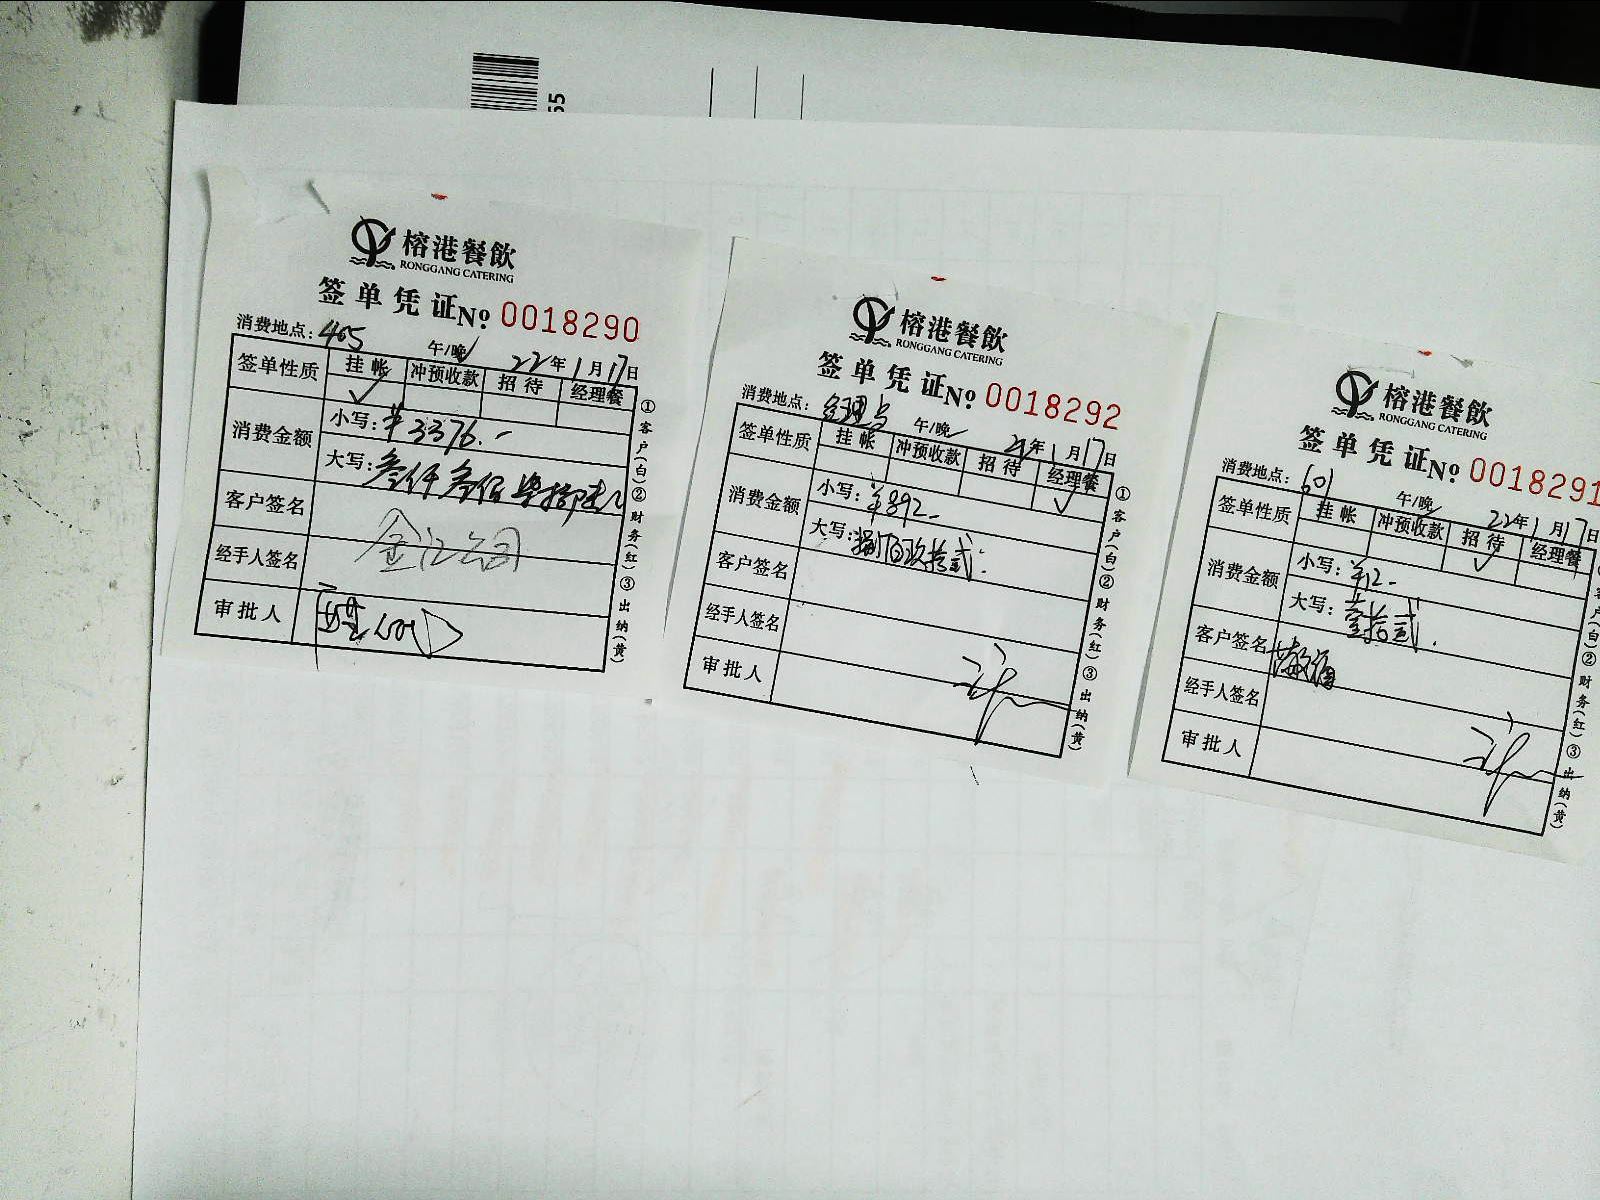 55
榕港餐飲
RONGGANG CATERING
签单凭证 No. 0018290
消费地点: 465 午/晚 22年1月17日
签单性质 挂帐 ✓ 冲预收款 招待 经理餐
消费金额 小写: ¥3376.-
大写: 叁仟叁佰柒拾陆元
客户签名 金江公司
经手人签名
审批人
①客户(白)②财务(红)③出纳(黄)
榕港餐飲
RONGGANG CATERING
签单凭证 No. 0018292
消费地点: 经理点 午/晚 22年1月17日
签单性质 挂帐 冲预收款 招待 经理餐 ✓
消费金额 小写: ¥892.-
大写: 捌佰玖拾贰.
客户签名
经手人签名
审批人
①客户(白)②财务(红)③出纳(黄)
榕港餐飲
RONGGANG CATERING
签单凭证 No. 0018291
消费地点: 601 午/晚 22年1月17日
签单性质 挂帐 冲预收款 招待 ✓ 经理餐
消费金额 小写: ¥12.-
大写: 壹拾贰.
客户签名
经手人签名
审批人
客户(白)②财务(红)③出纳(黄)